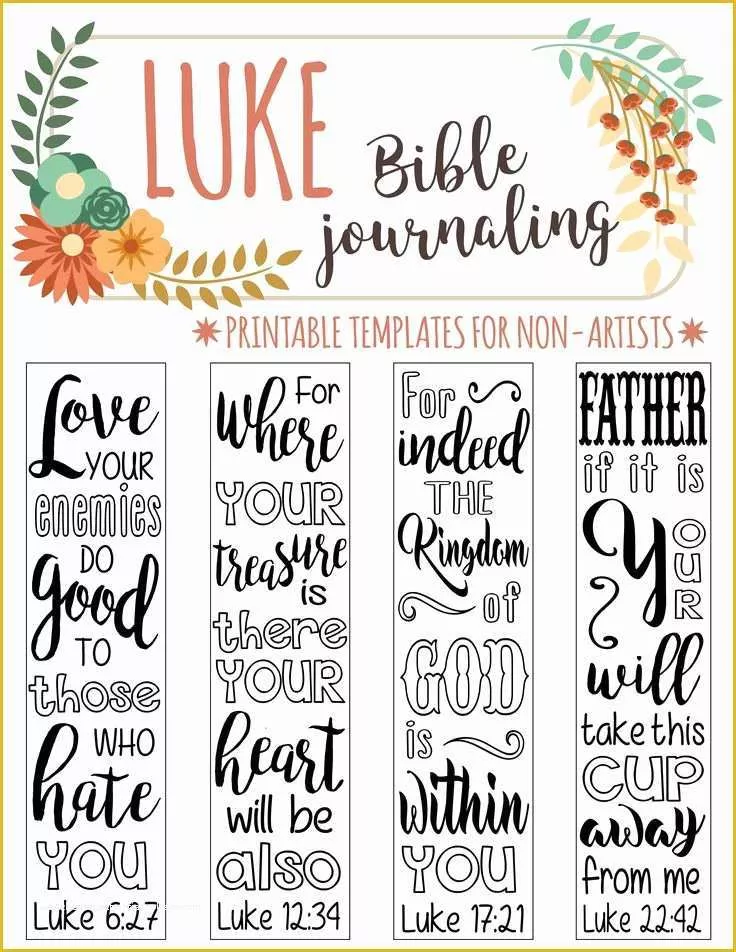 LUKE
Bible
journaling
PRINTABLE TEMPLATES FOR NON-ARTISTS
Love
YOUR
enemies
DO
good
TO
those
WHO
hate
YOU
Luke 6:27
For
where
YOUR
treasure
is
there
YOUR
heart
will be
also
Luke 12:34
For
indeed
THE
Kingdom
of
GOD
is
within
YOU
Luke 17:21
FATHER
if it is
YOUR
will
take this
CUP
away
from me
Luke 22:42